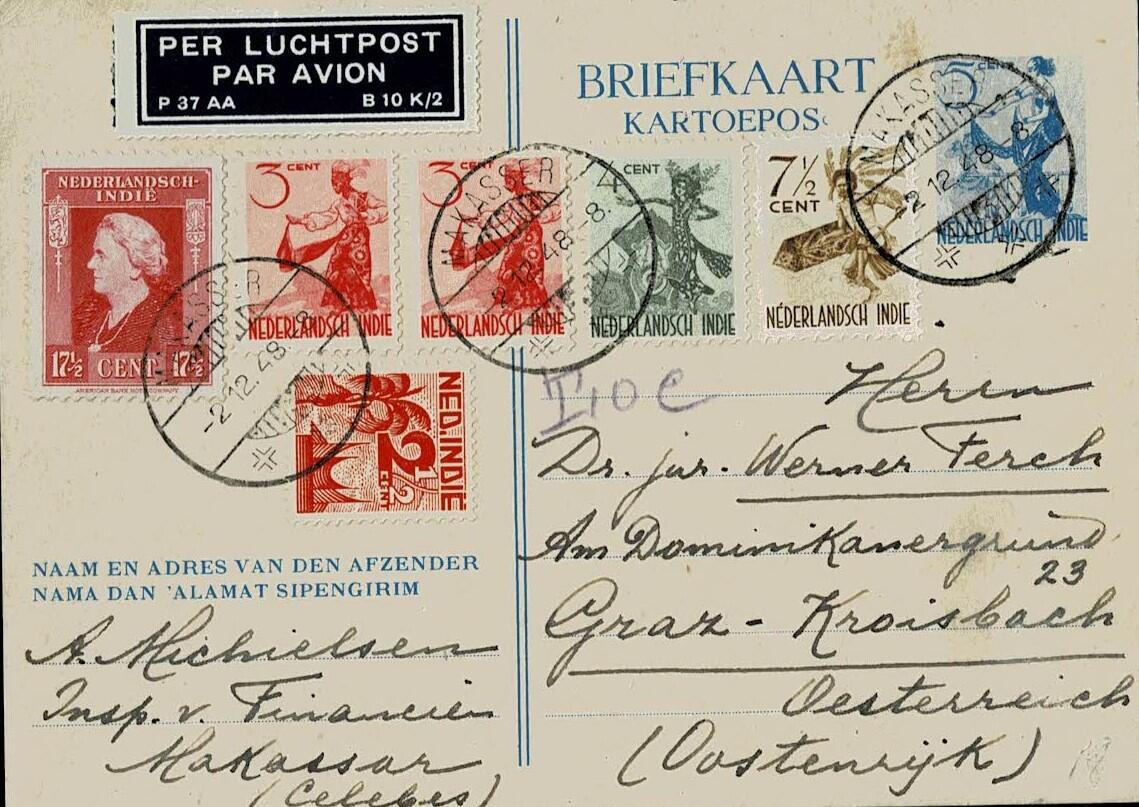 PER LUCHTPOST
PAR AVION
P 37 AA B 10 K/2
BRIEFKAART
KARTOEPOS
5 CENT
NEDERLANDSCH INDIE
MAKASSER
-2.12.48.8
NEDERLANDSCH-
INDIË
17½ CENT 17½
AMERICAN BANK NOTE COMPANY
MAKASSER
-2.12.48.8
3 CENT
NEDERLANDSCH INDIE
3 CENT
NEDERLANDSCH INDIE
MAKASSER
-2.12.48.8.
CENT
NEDERLANDSCH INDIE
7½
CENT
NEDERLANDSCH INDIE
NED. INDIË
2½
CENT
Herrn
Dr. jur. Werner Ferch
Am Dominikanergrund
23
Graz - Kroisbach
Oesterreich
(Oostenrijk)
NAAM EN ADRES VAN DEN AFZENDER
NAMA DAN 'ALAMAT SIPENGIRIM
A. Michielsen
Insp. v. Financiën
Makassar
(Celebes)